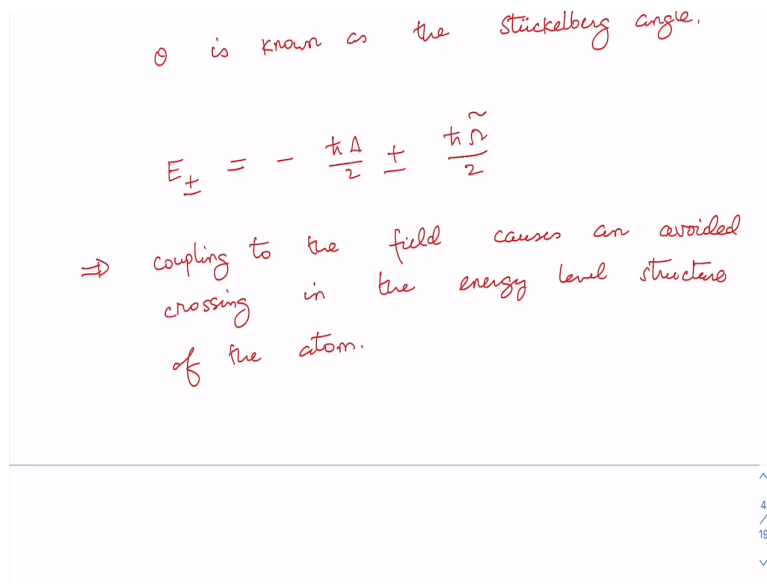 θ is known as the Stückelberg angle.
E± = - ħΔ/2 ± ħΩ̃/2
⇒ coupling to the field causes an avoided
crossing in the energy level structure
of the atom.
4
/
19